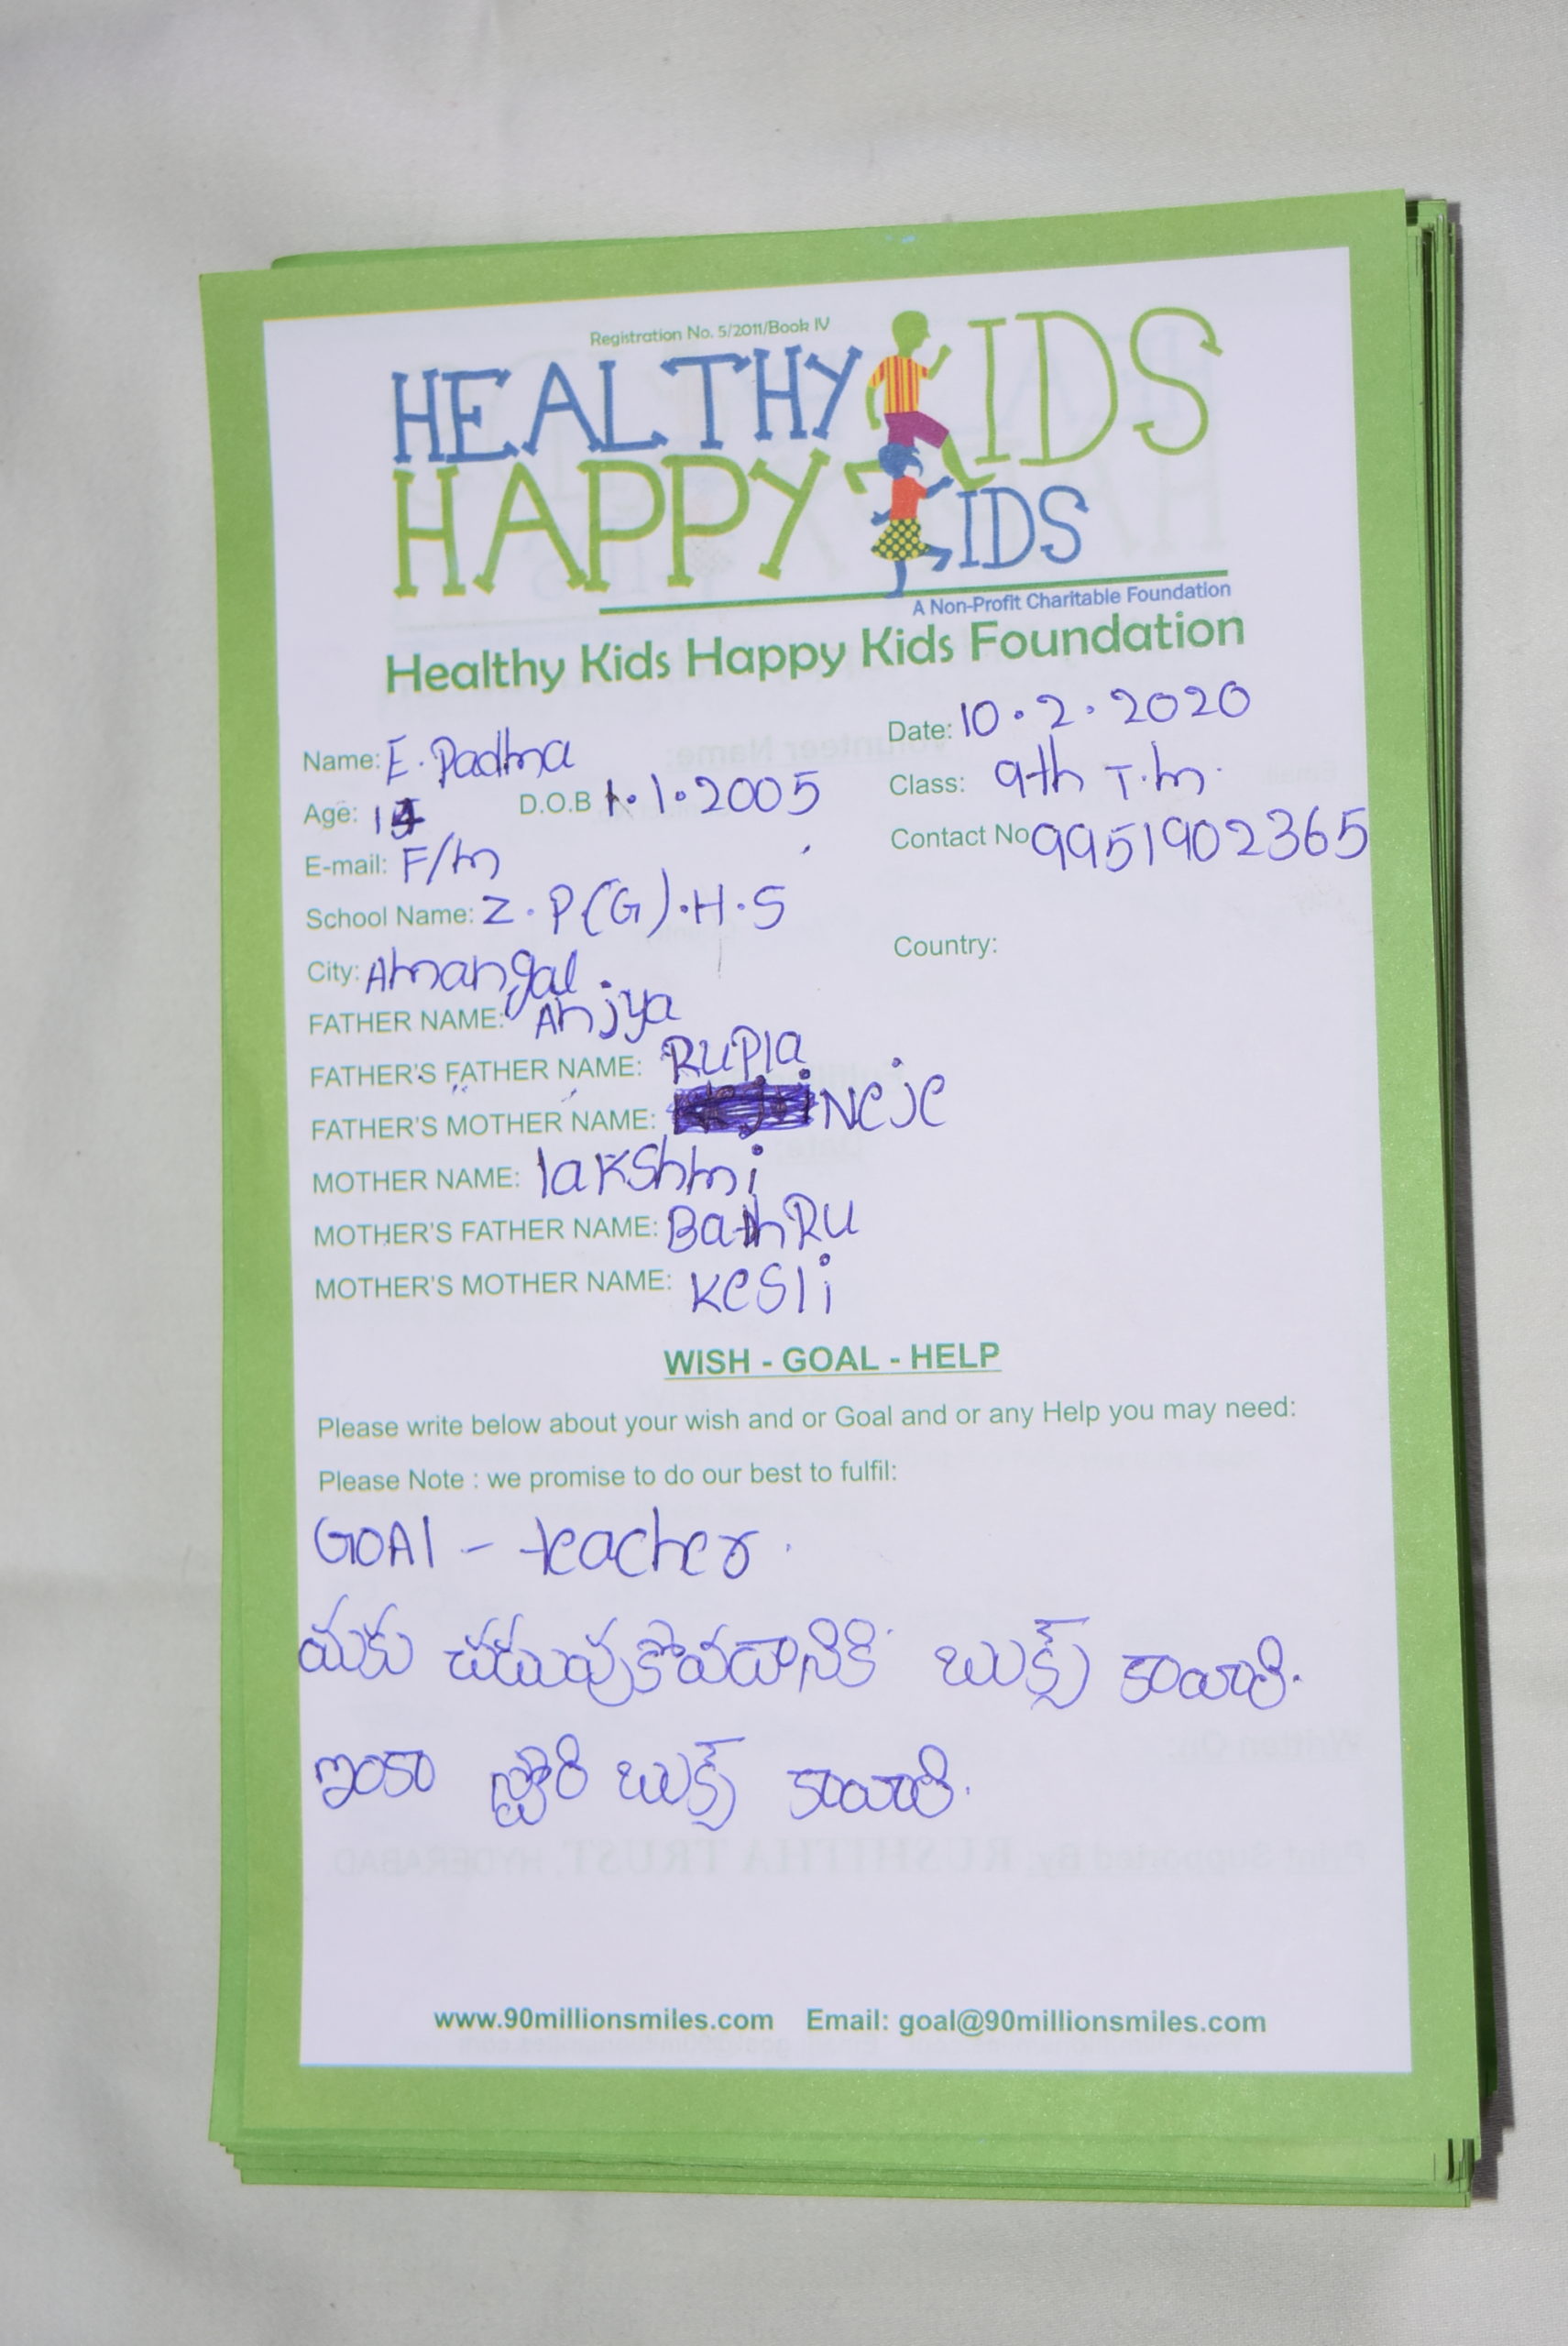 Registration No. 5/2011/Book IV
HEALTHY KIDS
HAPPY KIDS
A Non-Profit Charitable Foundation
Healthy Kids Happy Kids Foundation
Name: E. Padma
Date: 10.2.2020
Age: 14 D.O.B 1.1.2005
Class: 9th T.m.
E-mail: F/m
Contact No 9951902365
School Name: Z.P(G).H.S
City: Amangal
Country:
FATHER NAME: Anjya
FATHER'S FATHER NAME: RUPla
FATHER'S MOTHER NAME: Neje
MOTHER NAME: lakshmi
MOTHER'S FATHER NAME: BathRU
MOTHER'S MOTHER NAME: kesli
WISH - GOAL - HELP
Please write below about your wish and or Goal and or any Help you may need:
Please Note : we promise to do our best to fulfil:
GOAl - teacher.
మకు చదువుకోవడానికి బుక్స్ కావాలి.
ఇంకా స్టోరి బుక్స్ కావాలి.
www.90millionsmiles.com Email: goal@90millionsmiles.com